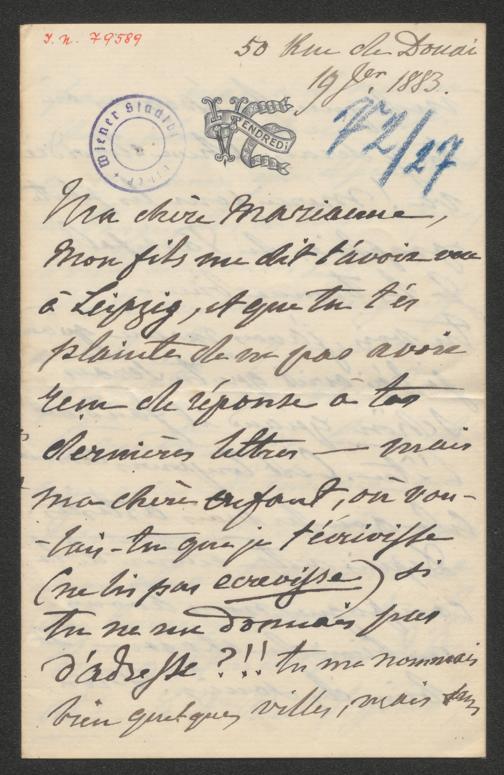 I. n. 79589
50 Rue de Douai
19 Jer 1883.
Wiener Stadtbi
VENDREDI
72/27
Ma chère Marianne,
Mon fils me dit t'avoir vue
à Leipzig, et que tu t'és
plainte de ne pas avoir
reçu de réponse à tes
dernières lettres — mais
ma chère enfant, où vou-
-lais-tu que je t'écrivisse
(ne lis pas écrevisse) si
tu ne me donnais pas
d'adresse ?!! tu me nommais
bien quelques villes, mais sans